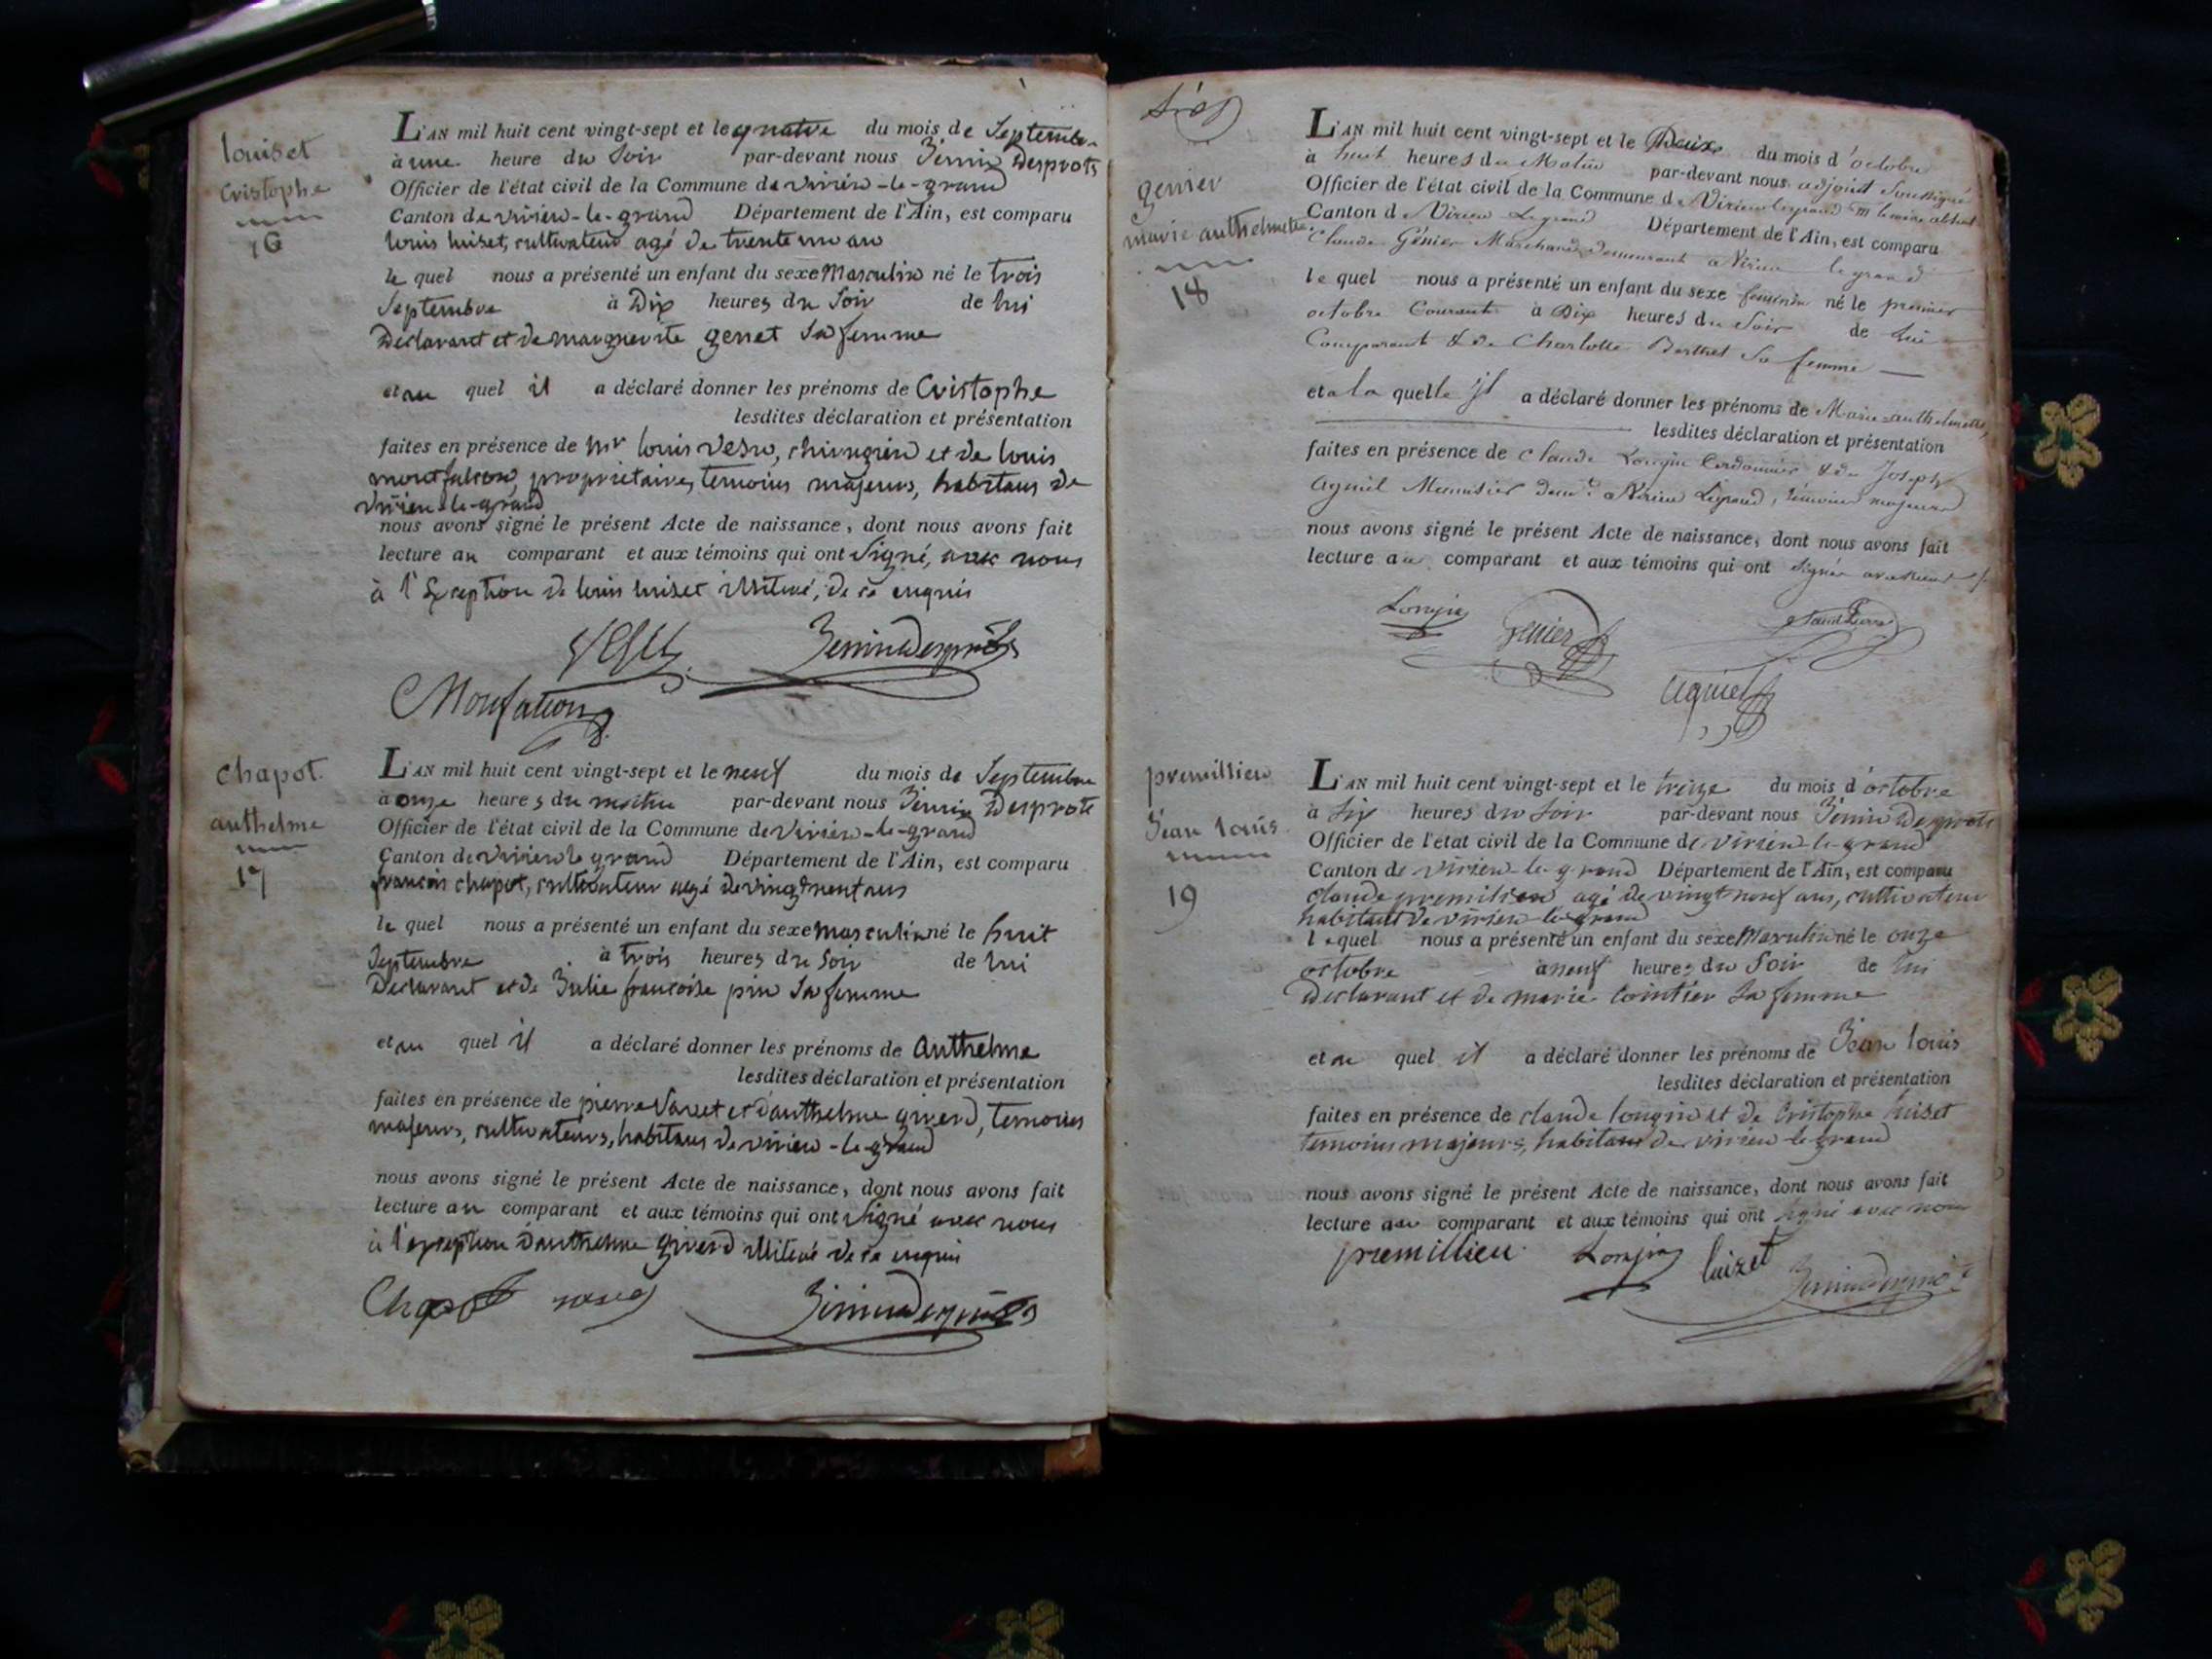 louiset
Cristophe
16
L'AN mil huit cent vingt-sept et le quatre du mois de Septembre
à une heure du Soir par-devant nous Desprots
Officier de l'état civil de la Commune de virieu-le-grand
Canton de virieu-le-grand Département de l'Ain, est comparu
louis luiset, cultivateur agé de trente un ans
le quel nous a présenté un enfant du sexe Masculin né le trois
Septembre à Dix heures du Soir de lui
Déclarant et de marguerite genet Sa femme
et au quel il a déclaré donner les prénoms de Cristophe
lesdites déclaration et présentation
faites en présence de mr louis vesu, chirurgien et de louis
montfalcon, propriétaire, temoins majeurs, habitans de
virieu-le-grand
nous avons signé le présent Acte de naissance, dont nous avons fait
lecture au comparant et aux témoins qui ont Signé, avec nous
à l'Exception de louis luiset illitéré, de ce enquis
Monfalcon
chapot
anthelme
17
L'AN mil huit cent vingt-sept et le neuf du mois de Septembre
à onze heures du matin par-devant nous Desprots
Officier de l'état civil de la Commune de virieu-le-grand
Canton de virieu le grand Département de l'Ain, est comparu
francois chapot, cultivateur agé de vingt neuf ans
le quel nous a présenté un enfant du sexe masculin né le huit
Septembre à trois heures du Soir de lui
Déclarant et de Julie francoise pin Sa femme
et au quel il a déclaré donner les prénoms de anthelme
lesdites déclaration et présentation
faites en présence de pierre et d'anthelme girerd, temoins
majeurs, cultivateurs, habitans de virieu-le-grand
nous avons signé le présent Acte de naissance, dont nous avons fait
lecture au comparant et aux témoins qui ont Signé avec nous
à l'exception d'anthelme girerd illitéré de ce enquis
Chapot
genier
marie anthelmette
18
L'AN mil huit cent vingt-sept et le Deux du mois d'octobre
à huit heures du Matin par-devant nous adjoint Soussigné
Officier de l'état civil de la Commune de Virieu legrand mr le maire absent
Canton de Virieu Legrand Département de l'Ain, est comparu
Claude Génier Marchand demeurant à Virieu le grand
le quel nous a présenté un enfant du sexe feminin né le premier
octobre Courant à Dix heures du Soir de lui
Comparant & de Charlotte Berthet Sa femme
et a la quelle il a déclaré donner les prénoms de Marie-anthelmette,
lesdites déclaration et présentation
faites en présence de Claude Longin Cordonnier & de Joseph
Aguiel Menuisier demt à Virieu Legrand, témoins majeurs
nous avons signé le présent Acte de naissance, dont nous avons fait
lecture au comparant et aux témoins qui ont Signés
Longin Genier
Aguiel
premillieu
Jean louis
19
L'AN mil huit cent vingt-sept et le treize du mois d'octobre
à Six heures du Soir par-devant nous Desprots
Officier de l'état civil de la Commune de virieu-le-grand
Canton de virieu-le-grand Département de l'Ain, est comparu
claude premilieu agé de vingt neuf ans, cultivateur
habitant de virieu-le-grand
le quel nous a présenté un enfant du sexe Masculin né le onze
octobre à neuf heures du Soir de lui
Déclarant et de marie cointier Sa femme
et au quel il a déclaré donner les prénoms de Jean louis
lesdites déclaration et présentation
faites en présence de claude longin et de Cristophe luiset
temoins majeurs, habitans de virieu-le-grand
nous avons signé le présent Acte de naissance, dont nous avons fait
lecture au comparant et aux témoins qui ont signé avec nous
premillieu Longin luizet